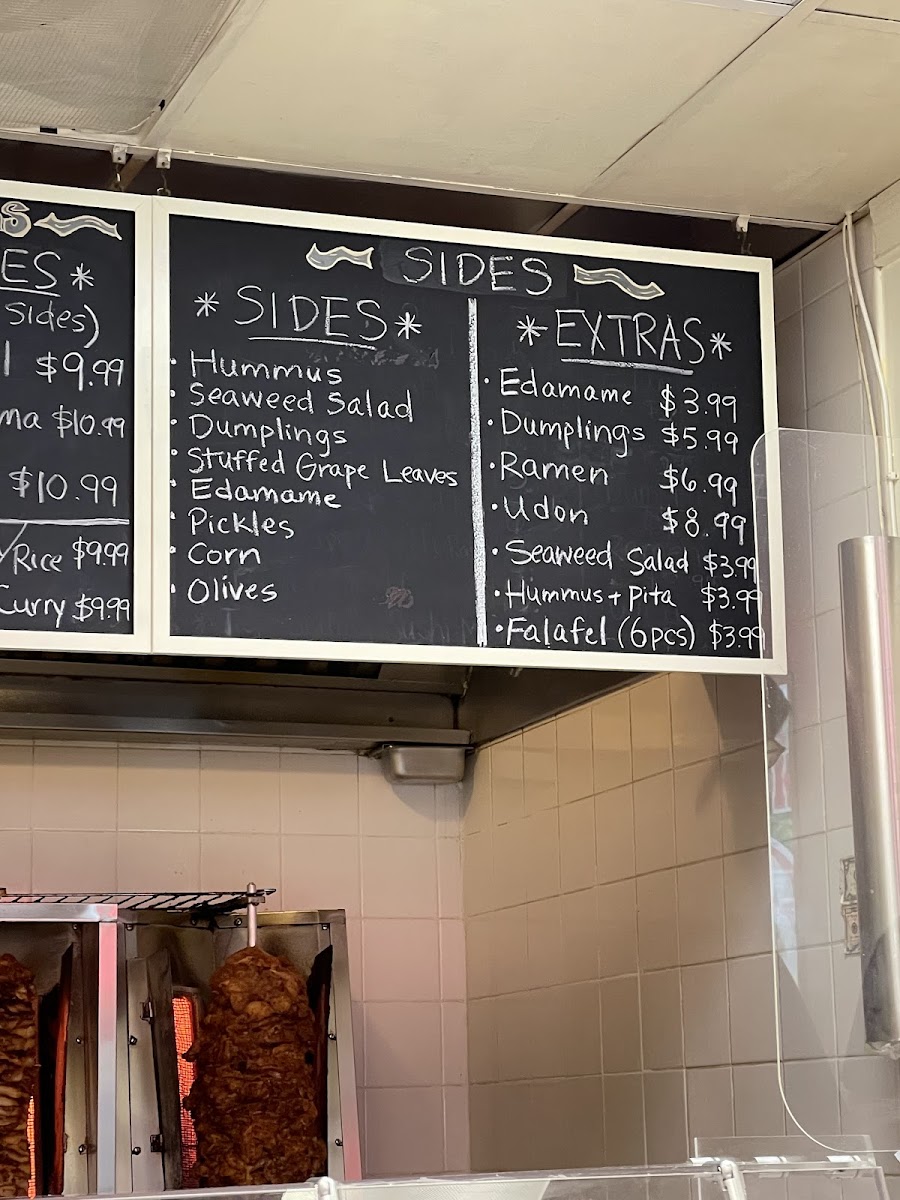 ES*
sides)
$9.99
ma $10.99
$10.99
/Rice $9.99
Curry $9.99
SIDES
*SIDES*
• Hummus
• Seaweed Salad
• Dumplings
• Stuffed Grape Leaves
• Edamame
• Pickles
• Corn
• Olives
*EXTRAS*
• Edamame $3.99
• Dumplings $5.99
• Ramen $6.99
• Udon $8.99
• Seaweed Salad $3.99
• Hummus + Pita $3.99
• Falafel (6pcs) $3.99